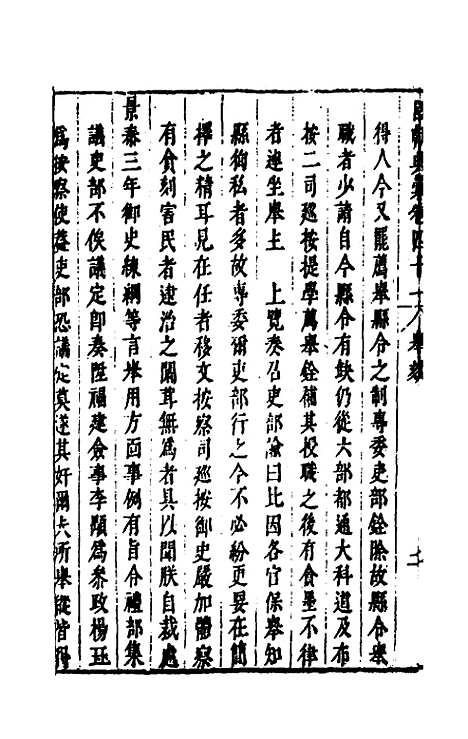 國朝典彙卷四十一 舉錯
得人今又罷薦舉縣令之制專委吏部銓除故縣令舉
職者少請自今縣令有缺仍從六部都通大科道及布
按二司巡按提學薦舉銓補其授職之後有貪墨不律
者連坐舉主 上覽奏召吏部諭曰比因各官保舉知
縣徇私者多故專委爾吏部行之今不必紛更要在簡
擇之精耳見在任者移文按察司巡按御史嚴加體察
有貪刻害民者逮治之闒茸無為者具以聞朕自裁處
景泰三年御史練綱等言舉用方面事例有旨令禮部集
議吏部不俟議定即奏陞福建僉事李顒為參政楊珏
為按察使蓋吏部恐議定莫遂其奸爾夫所舉縱皆得